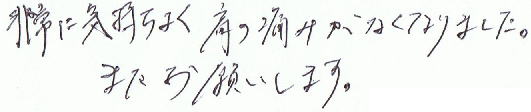 非常に気持ちよく肩の痛みがなくなりました。
またお願いします。